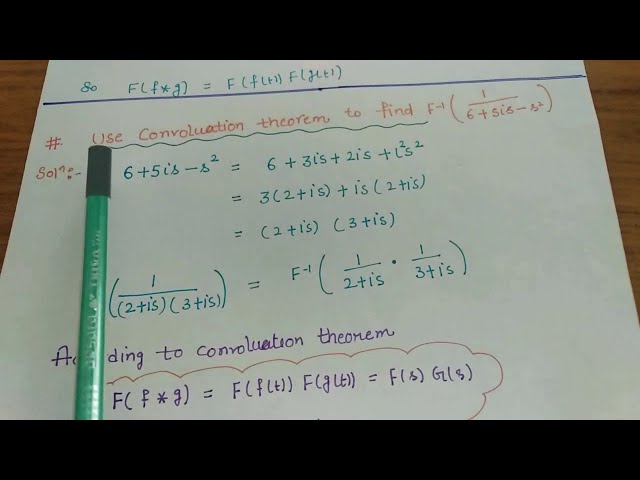 So F(f*g) = F(f(t)) F(g(t))
#. Use Convoluation theorem to find F⁻¹(1/(6+5is-s²))
Solⁿ:- 6+5is-s² = 6+3is+2is+i²s²
= 3(2+is)+is(2+is)
= (2+is) (3+is)
(1/((2+is)(3+is))) = F⁻¹(1/(2+is) · 1/(3+is))
According to convoluation theorem
F(f*g) = F(f(t)) F(g(t)) = F(s) G(s)